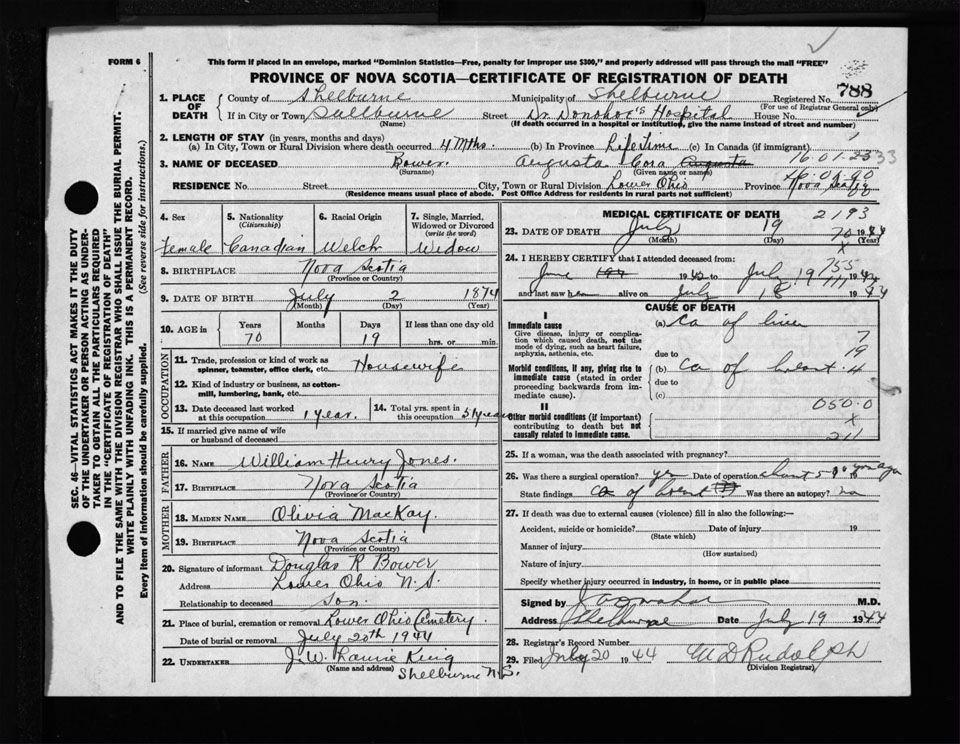 FORM 6
This form if placed in an envelope, marked "Dominion Statistics—Free, penalty for improper use $300," and properly addressed will pass through the mail "FREE"
PROVINCE OF NOVA SCOTIA—CERTIFICATE OF REGISTRATION OF DEATH
1. PLACE OF DEATH County of Shelburne Municipality of Shelburne Registered No. 788
(For use of Registrar General only)
If in City or Town Shelburne Street Dr. Donohoe's Hospital House No.
(Name) (If death occurred in a hospital or institution, give the name instead of street and number)
2. LENGTH OF STAY (in years, months and days)
(a) In City, Town or Rural Division where death occurred 4 Mths. (b) In Province Life Time (c) In Canada (if immigrant)
3. NAME OF DECEASED Bower. Augusta Cora Augusta 16.01.23 33
(Surname) (Given name or names)
RESIDENCE No. Street City, Town or Rural Division Lower Ohio Province Nova Scotia
(Residence means usual place of abode. Post Office Address for residents in rural parts not sufficient)
4. Sex Female
5. Nationality (Citizenship) Canadian
6. Racial Origin Welch
7. Single, Married, Widowed or Divorced (write the word) Widow
8. BIRTHPLACE Nova Scotia
(Province or Country)
9. DATE OF BIRTH July 2 1874
(Month) (Day) (Year)
10. AGE in Years 70 Months Days 19 If less than one day old hrs. or min.
OCCUPATION
11. Trade, profession or kind of work as spinner, teamster, office clerk, etc. Housewife
12. Kind of industry or business, as cotton-mill, lumbering, bank, etc.
13. Date deceased last worked at this occupation 1 year. 14. Total yrs. spent in this occupation 51 years
15. If married give name of wife or husband of deceased
FATHER
16. NAME William Henry Jones.
17. BIRTHPLACE Nova Scotia
(Province or Country)
MOTHER
18. MAIDEN NAME Olivia MacKay.
19. BIRTHPLACE Nova Scotia
(Province or Country)
20. Signature of informant Douglas R Bower
Address Lower Ohio N.S.
Relationship to deceased son.
21. Place of burial, cremation or removal Lower Ohio Cemetery.
Date of burial or removal July 20th 1944
22. UNDERTAKER J.W. Laurie King
(Name and address) Shelburne N.S.
MEDICAL CERTIFICATE OF DEATH 2193
23. DATE OF DEATH July 19 1944
(Month) (Day) (Year)
70
X
24. I HEREBY CERTIFY that I attended deceased from:
755
June 1943 to July 19 1944
and last saw her alive on July 18 1944
CAUSE OF DEATH
I
Immediate cause
Give disease, injury or complication which caused death, not the mode of dying, such as heart failure, asphyxia, asthenia, etc.
(a) Ca of liver
7
due to 19
Morbid conditions, if any, giving rise to immediate cause (stated in order proceeding backwards from immediate cause).
(b) Ca of breast. 4
due to
(c)
II
Other morbid conditions (if important) contributing to death but not causally related to immediate cause.
050.0
X
211
25. If a woman, was the death associated with pregnancy?
26. Was there a surgical operation? yes Date of operation about 5 years ago
State findings Ca of breast Was there an autopsy? no
27. If death was due to external causes (violence) fill in also the following:—
Accident, suicide or homicide? Date of injury 19
(State which)
Manner of injury
(How sustained)
Nature of injury
Specify whether injury occurred in industry, in home, or in public place
Signed by M.D.
Address Shelburne Date July 19 1944
28. Registrar's Record Number
29. Filed July 20 1944 M D Rudolph
(Division Registrar)
SEC. 46—VITAL STATISTICS ACT MAKES IT THE DUTY OF THE UNDERTAKER OR PERSON ACTING AS UNDERTAKER TO OBTAIN ALL THE PARTICULARS REQUIRED IN THE "CERTIFICATE OF REGISTRATION OF DEATH" AND TO FILE THE SAME WITH THE DIVISION REGISTRAR WHO SHALL ISSUE THE BURIAL PERMIT.
WRITE PLAINLY WITH UNFADING INK. THIS IS A PERMANENT RECORD.
Every item of information should be carefully supplied. (See reverse side for instructions.)